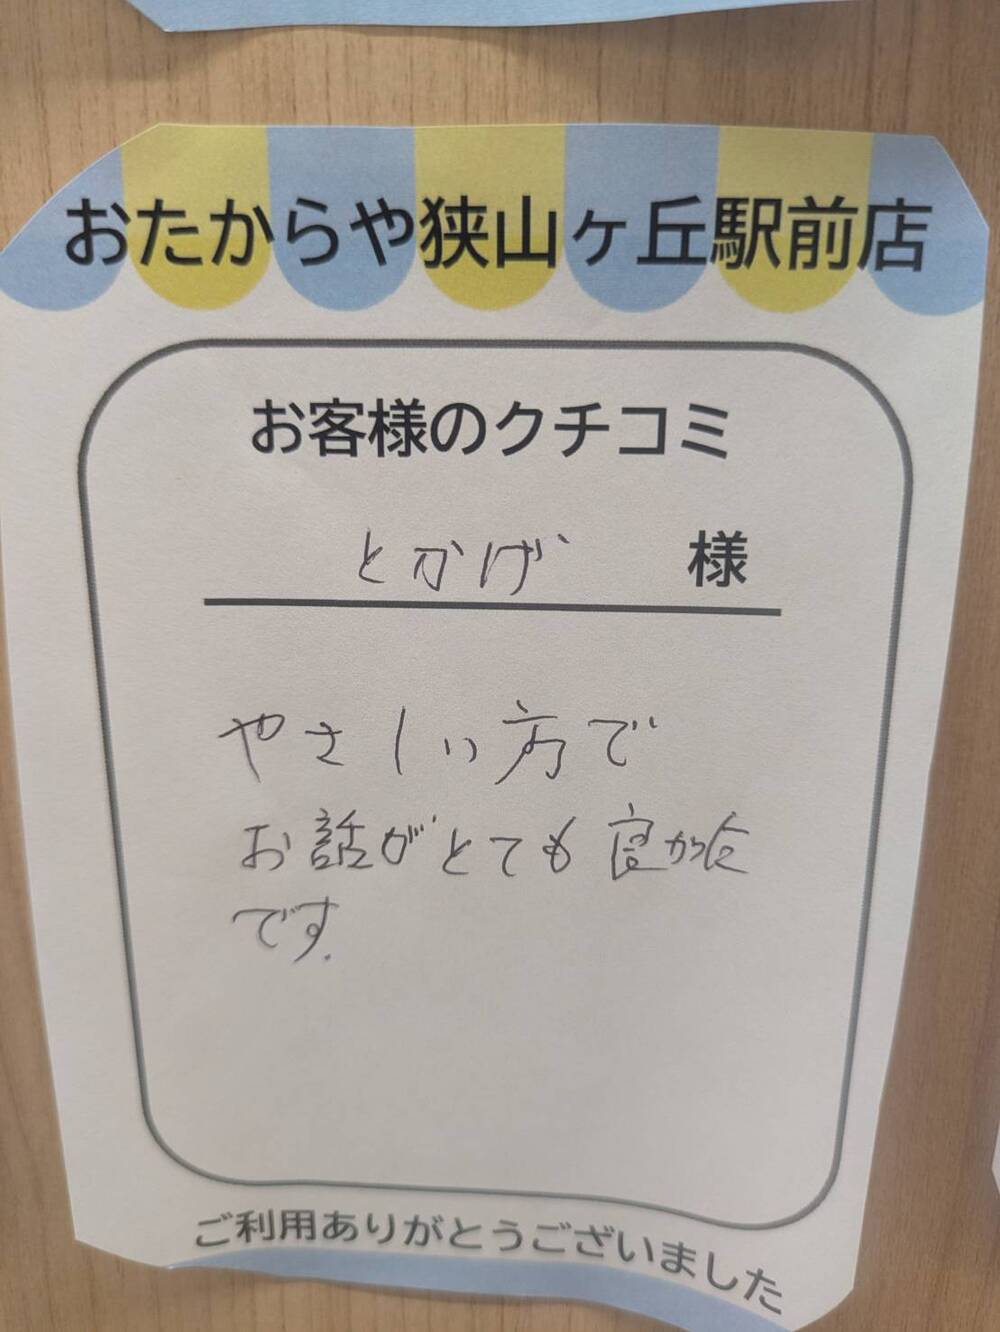 おたからや狭山ヶ丘駅前店
お客様のクチコミ
とかげ 様
やさしい方で
お話がとても良かった
です.
ご利用ありがとうございました